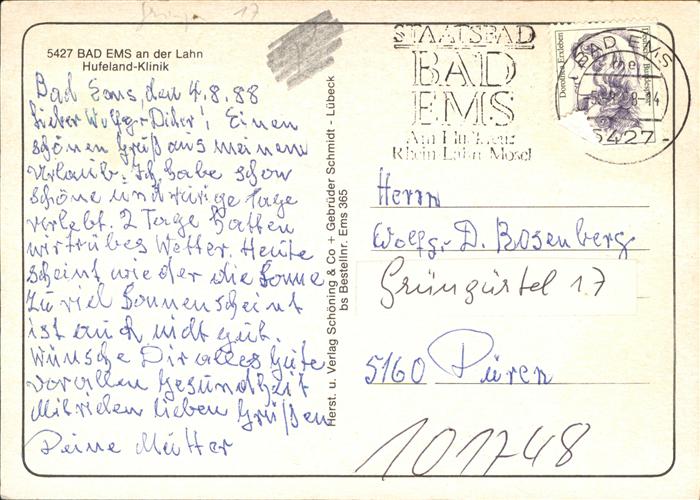 Grüng. 17
5427 BAD EMS an der Lahn
Hufeland-Klinik
Bad Ems, den 4.8.88
Lieber Wolfg.-Dider! Einen
schönen Gruß aus meinem
Urlaub. Ich habe schon
schöne und ruige Tage
verlebt. 2 Tage hatten
wir trübes Wetter. Heute
scheint wieder die Sonne
Zu viel Sonnenscheint
ist auch nicht gut.
Wünsche Dir alles Gute
vor allen Gesundheit
Mit vielen lieben Grüßen
Deine Mutter
Herst. u. Verlag Schöning & Co + Gebrüder Schmidt - Lübeck
bs Bestellnr. Ems 365
STAATSBAD
BAD
EMS
Am Flußkreuz
Rhein-Lahn-Mosel
Dorothea Erxleben
BAD EMS
8-14
5427
Herrn
Wolfg.-D. Rosenberg
Grüngürtel 17
5160 Düren
101748